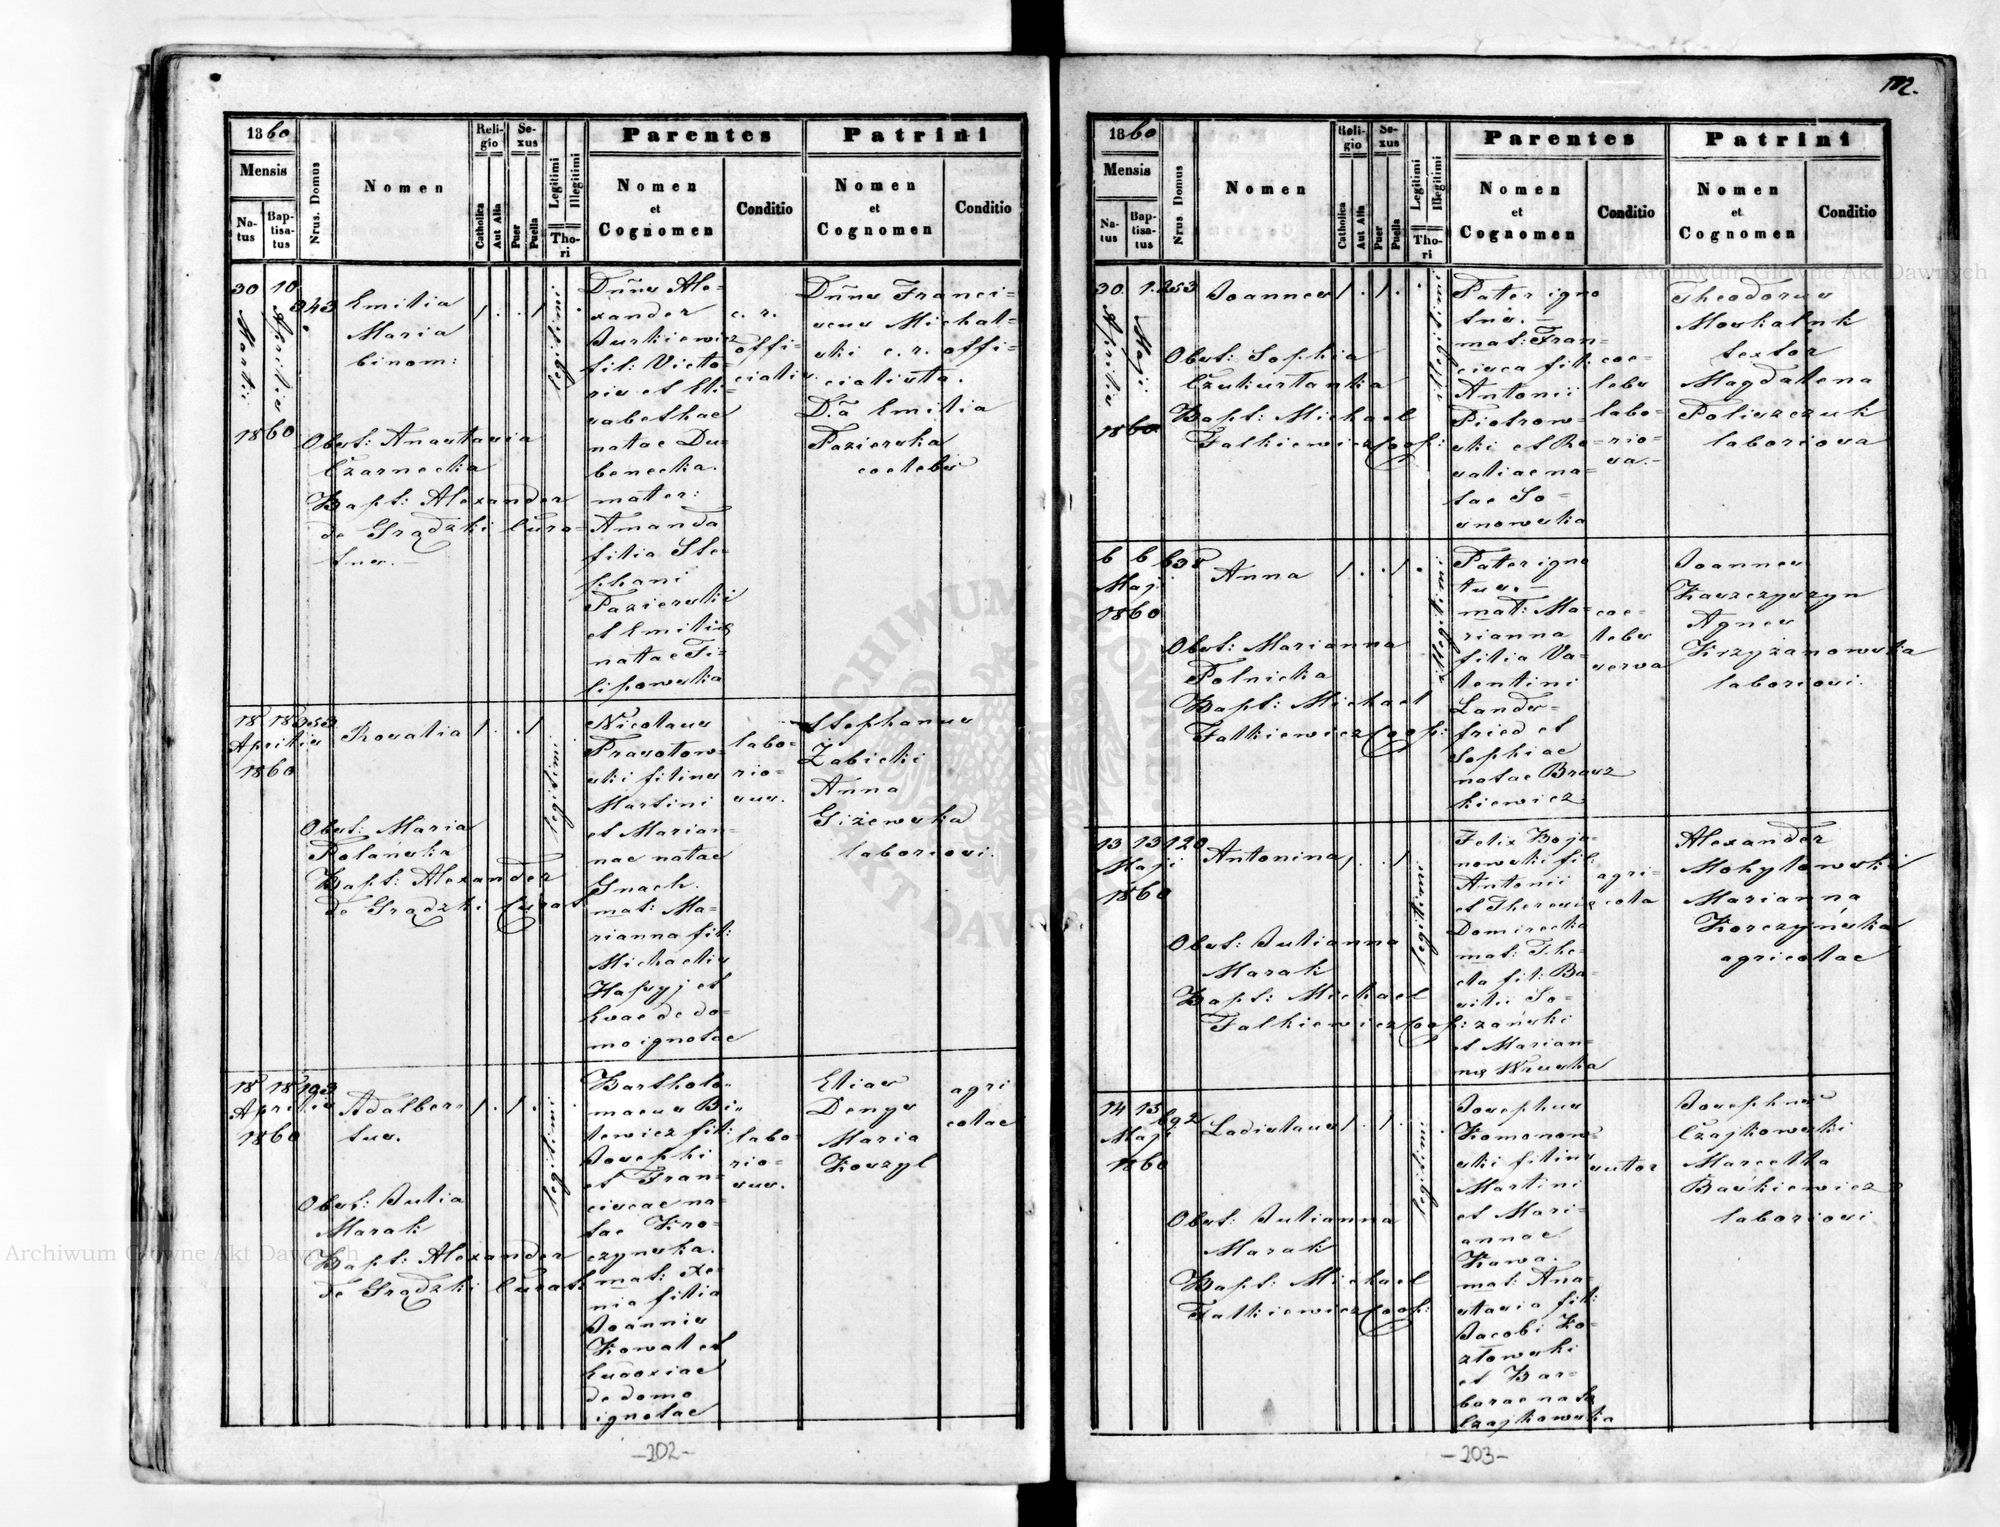 1860
Mensis
Natus
Baptisatus
Nrus. Domus
Nomen
Religio
Catholica
Aut Alia
Sexus
Puer
Puella
Legitimi
Illegitimi
Thori
Parentes
Nomen
et
Cognomen
Conditio
Patrini
Nomen
et
Cognomen
Conditio
30 10
Martii Aprilis
1860
343
Emilia
Maria
binom:
Obst: Anastasia
Czarnecka
Bapt: Alexander
de Grądzki Cura=
tus.
legitimi
Dnus Ale=
xander
Jurkiewicz
fil: Victo=
ris et Eli=
sabethae
natae Du=
benecka.
mater:
Amanda
filia Ste=
phani
Pazierski
et Emiliae
natae Fi=
lipowska
c. r.
offi=
cialis
Dnus Franci=
scus Michal=
ski c. r. offi=
cialista.
Dna Emilia
Pazierska
coelebs
18 18
Aprilis
1860
Rosalia
Obst: Maria
Polańska
Bapt: Alexander
de Grądzki Curat
legitimi
Nicolaus
Prasolow=
ski filius
Martini
et Marian=
nae natae
Gnach.
mat: Ma=
rianna fil:
Michaelis
Hapyj et
Evae de do=
mo ignotae
labo=
rio=
sus.
Stephanus
Zabicki
Anna
Giżewska
laboriosi.
18 18 193
Aprilis
1860
Adalber=
tus.
Obst: Julia
Marak
Bapt: Alexander
de Grądzki Curat.
legitimi
Bartholo=
maeus Bi=
lewicz fil:
Josephi
et Fran=
ciscae na=
tae Kro=
czynska.
mat: Xe=
nia filia
Joannis
Kowal et
Eudoxiae
de domo
ignotae
labo=
rio=
sus.
Elias
Denys
Maria
Koszyl
agri
colae
-202-
102.
1860
Mensis
Natus
Baptisatus
Nrus. Domus
Nomen
Religio
Catholica
Aut Alia
Sexus
Puer
Puella
Legitimi
Illegitimi
Thori
Parentes
Nomen
et
Cognomen
Conditio
Patrini
Nomen
et
Cognomen
Conditio
30. 1. 253
Aprilis Maji
1860
Joannes
Obst: Sophia
Czukurlanka
Bapt: Michael
Falkiewicz Coop:
illegitimi
Pater igno
tus.
mat: Fran=
cisca fil:
Antonii
Piotrow=
ski et Ro=
saliae na=
tae So=
snowska
coe=
lebs
labo=
rio=
sa.
Theodorus
Moskaluk
textor
Magdalena
Poliszczuk
laboriosa
6 6 638
Maji
1860
Anna
Obst: Marianna
Polnicka
Bapt: Michael
Falkiewicz Coop:
illegitimi
Pater igno
tus.
mat: Ma=
rianna
filia Va=
lentini
Lands=
fried et
Sophiae
natae Brosz
kiewicz
coe=
lebs
serva
Joannes
Kaszczyszyn
Agnes
Krzyżanowska
laboriosi.
13 13 120
Maji
1860
Antonina
Obst: Julianna
Marak
Bapt: Michael
Falkiewicz Coop:
legitimi
Felix Boja=
nowski fil:
Antonii
et Theresiae
Domirecka
mat: The=
cla fil: Ba=
silii So=
zański
et Marian=
nae Wruska
agri=
cola
Alexander
Mohylowski
Marianna
Korczyńska
agricolae
14 15 692
Maji
1860
Ladislaus
Obst: Julianna
Marak
Bapt: Michael
Falkiewicz Coop:
legitimi
Josephus
Komonow=
ski filius
Martini
et Mari=
annae
Kawa.
mat: Ana=
stasia fil:
Jacobi Ko=
złowski
et Bar=
barae natae
Czajkowska
sutor
Josephus
Czajkowski
Marcella
Baśkiewicz
laboriosi
-203-
Archiwum Główne Akt Dawnych
Archiwum Główne Akt Dawnych
ARCHIWUM GŁÓWNE AKT DAWNYCH